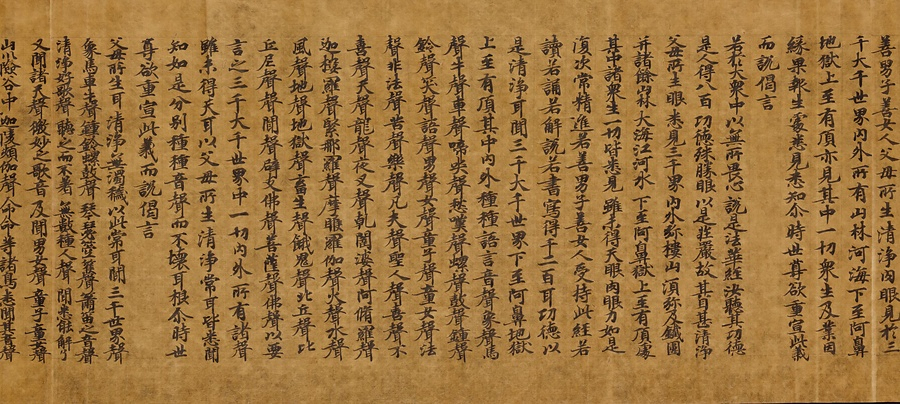 善男子善女人父母所生清淨肉眼見於三
千大千世界內外所有山林河海下至阿鼻
地獄上至有頂亦見其中一切衆生及業因
緣果報生處悉見悉知尒時世尊欲重宣此義
而說偈言
若於大衆中以無所畏心說是法華經汝聽其功德
是人得八百功德殊勝眼以是莊嚴故其目甚清淨
父母所生眼悉見三千界內外彌樓山須弥及鐵圍
并諸餘山林大海江河水下至阿鼻獄上至有頂處
其中諸衆生一切皆悉見雖未得天眼肉眼力如是
復次常精進若善男子善女人受持此經若
讀若誦若解說若書寫得千二百耳功德以
是清淨耳聞三千大千世界下至阿鼻地獄
上至有頂其中內外種種語言音聲象聲馬
聲牛聲車聲啼哭聲愁嘆聲螺聲鼓聲鍾聲
鈴聲笑聲語聲男聲女聲童子聲童女聲法
聲非法聲苦聲樂聲凡夫聲聖人聲喜聲不
喜聲天聲龍聲夜叉聲乹闥婆聲阿脩羅聲
迦樓羅聲緊那羅聲摩睺羅伽聲火聲水聲
風聲地聲地獄聲畜生聲餓鬼聲比丘聲比
丘尼聲聲聞聲辟支佛聲菩薩聲佛聲以要
言之三千大千世界中一切內外所有諸聲
雖未得天耳以父母所生清淨常耳皆悉聞
知如是分別種種音聲而不壞耳根尒時世
尊欲重宣此義而說偈言
父母所生耳清淨無濁穢以此常耳聞三千世界聲
象馬車牛聲鍾鈴螺鼓聲琴瑟箜篌聲簫笛之音聲
清淨好歌聲聽之而不著無數種人聲聞悉能解了
又聞諸天聲微妙之歌音及聞男女聲童子童女聲
山川險谷中迦陵頻伽聲命命等諸鳥悉聞其音聲